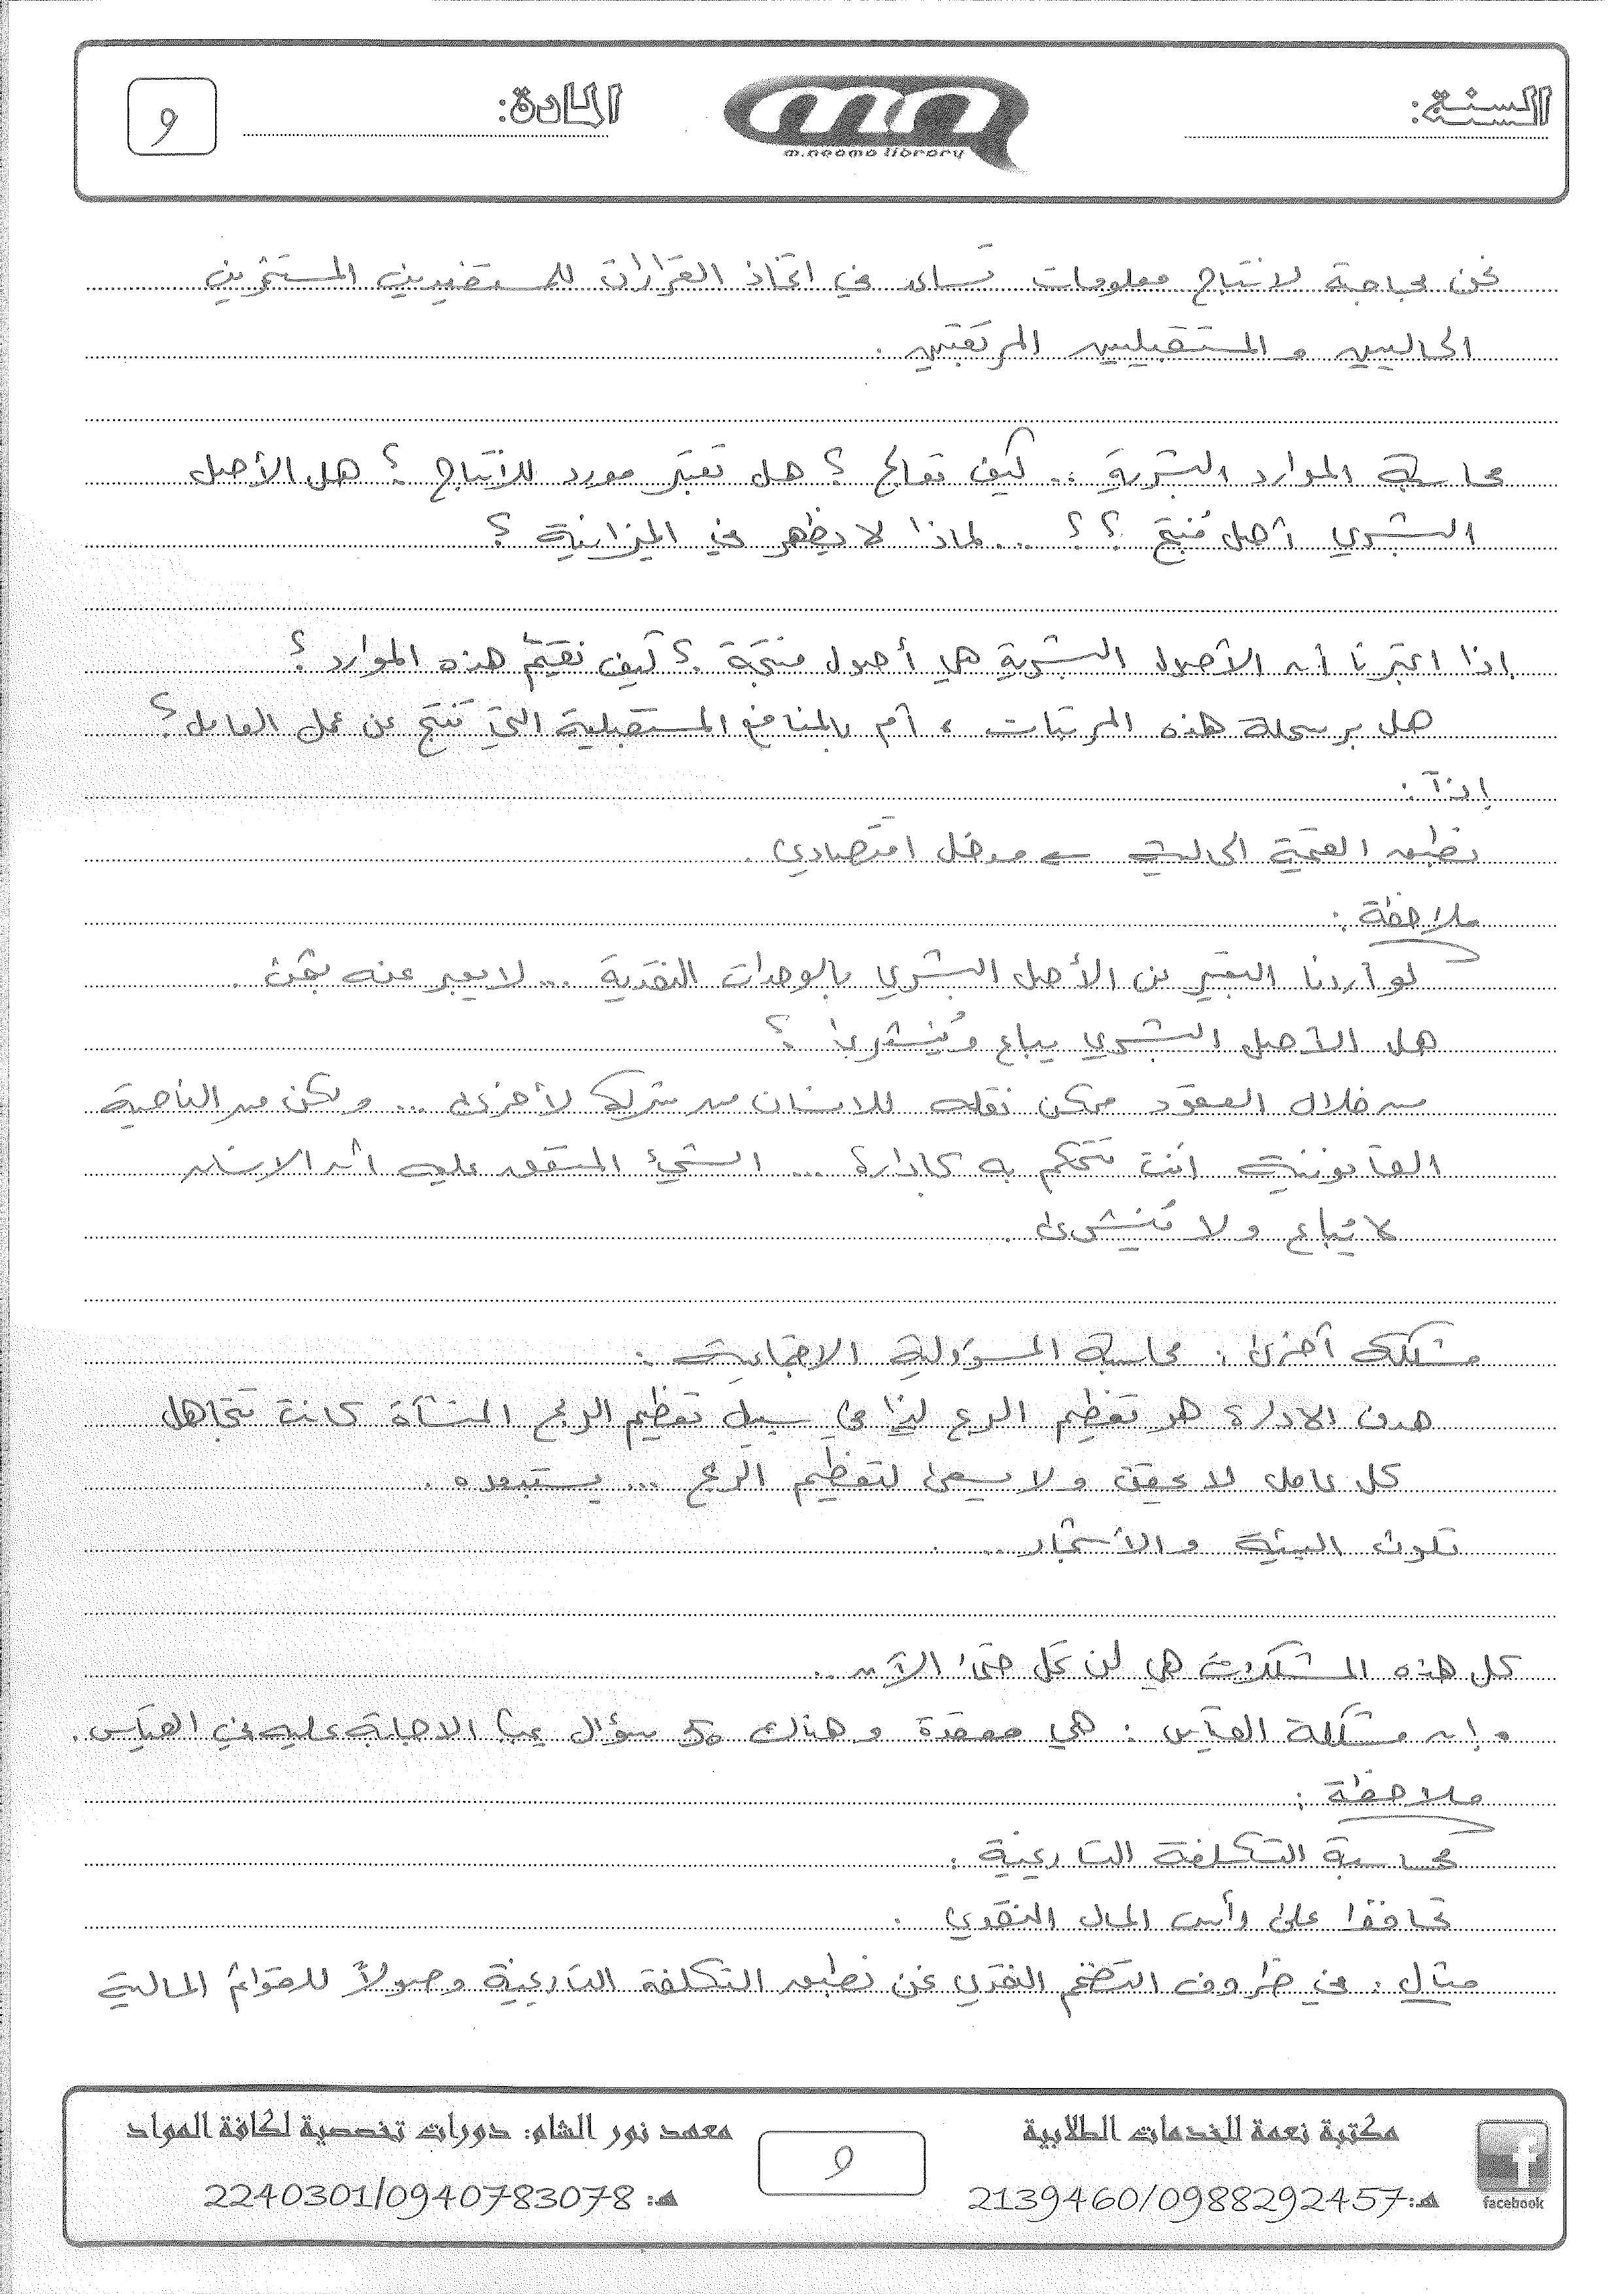 السنة:
m.neama library
المادة:
9
نحن بحاجة لانتاج معلومات تساعد في اتخاذ القرارات للمستفيدين المستثمرين
الحاليين و المستقبليين المرتقبين .
محاسبة الموارد البشرية .. كيف تعالج ؟ هل تعتبر مورد للانتاج ؟ هل الأصل
البشري أصل مُنتج ؟ ؟ ... لماذا لا يظهر في الميزانية ؟
إذا اعتبرنا أن الأصول البشرية هي أصول منتجة ؟ كيف نقيّم هذه الموارد ؟
هل برسملة هذه المرتبات ، أم بالمنافع المستقبلية التي تنتج عن عمل العامل ؟
إذاً :
نطبق القيمة الحالية ← مدخل اقتصادي .
ملاحظة :
لو أردنا التعبير عن الأصل البشري بالوحدات النقدية ... لا يعبر عنه بثمن .
هل الأصل البشري يباع ويُشترى ؟
من خلال العقود ممكن نقله للانسان من شركة لأخرى ... ولكن من الناحية
القانونية أنت تتحكم به كإدارة ... الشيء المتفق عليه أن الانسان
لا يُباع ولا يُشترى .
مشكلة أخرى : محاسبة المسؤولية الاجتماعية :
هدف الادارة هو تعظيم الربح لذا في سبيل تعظيم الربح المنشأة كانت تتجاهل
كل عامل لا يحقق ولا يسعى لتعظيم الربح ... يستبعده .
تلوث البيئة والأشجار ...
كل هذه المشكلات هي لم تحل حتى الآن ..
و إن مشكلة القياس : هي معقدة وهناك 50 سؤال يجب الاجابة عليه في القياس .
ملاحظة :
محاسبة التكلفة التاريخية :
تحافظ على رأس المال النقدي .
مثال : في ظروف التضخم النقدي نحن نطبق التكلفة التاريخية وصولاً للقوائم المالية
مكتبة نعمة للخدمات الطلابية
هـ: 2139460/0988292457
facebook
9
معهد نور الشام: دورات تخصصية لكافة المواد
هـ: 2240301/0940783078